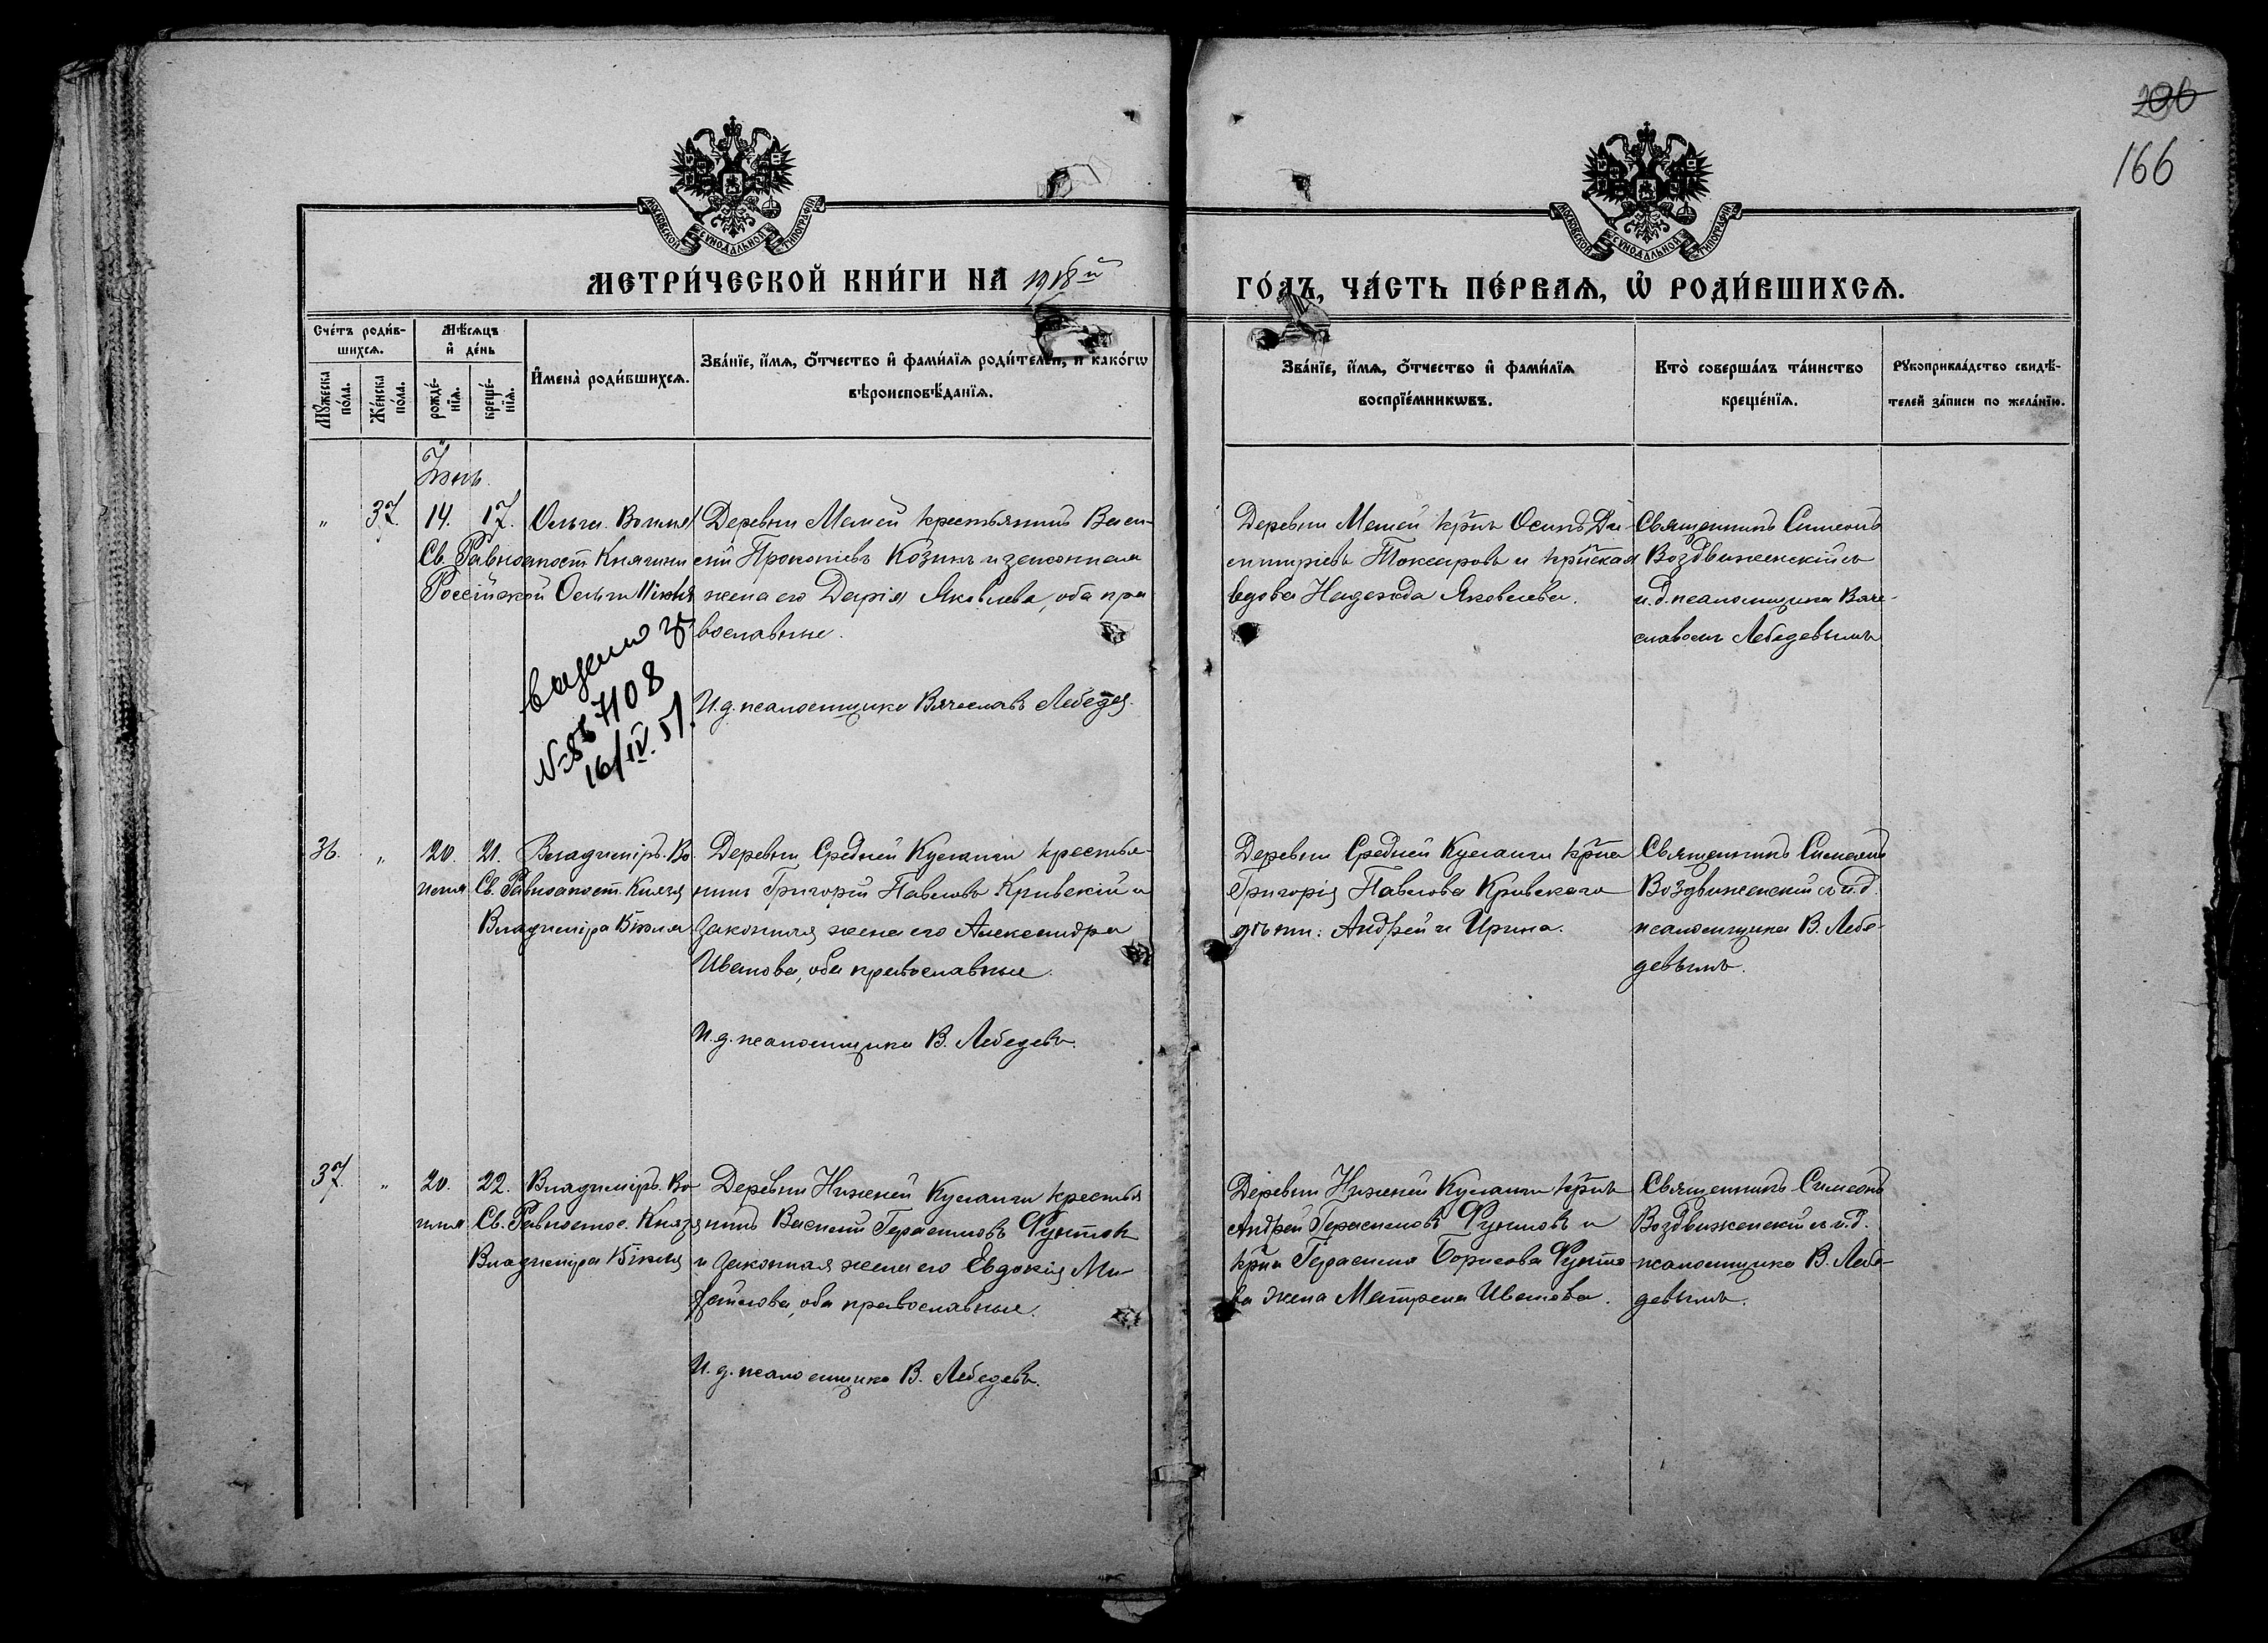 206
166
МОСКОВСКОЙ СѴНОДАЛЬНОЙ ТИПОГРАФІИ
МОСКОВСКОЙ СѴНОДАЛЬНОЙ ТИПОГРАФІИ
МЕТРИ́ЧЕСКОЙ КНИ́ГИ НА 1918й
ГО́ДЪ, ЧА́СТЬ ПЕ́РВАѦ, Ѡ҆ РОДИ́ВШИХСѦ.
Сче́тъ роди́в-
шихсѧ.
Мѣ́сѧцъ
и҆ де́нь
Мꙋ́жеска по́ла.
Же́нска по́ла.
рожде́-
нїѧ.
креще́-
нїѧ.
И҆мена̀ роди́вшихсѧ.
Зва́нїе, и҆́мѧ, ѻ҆́тчество и҆ фами́лїѧ роди́телей, и҆ како́гѡ
вѣроисповѣ́данїѧ.
Зва́нїе, и҆́мѧ, ѻ҆́тчество и҆ фами́лїѧ
воспрїе́мникѡвъ.
Кто̀ соверша́лъ та́инство
креще́нїѧ.
Рꙋкоприкла́дство свидѣ́-
телей за́писи по жела́нїю.
" 37. 14. 17. Ольга. Во имя
Св. Равноапост. Княгини
Россійской Ольги 11 іюля
Деревни Мамей крестьянинъ Васи-
лій Прокопіевъ Козинъ и законная
жена его Дарія Яковлева, оба пра
вославные.
И.д. псаломщика Вячеславъ Лебедев.
7108
16/IV.51.
Деревни Мамей кр-нъ Осипъ Ди-
митріевъ Токсаровъ и кр-нская
вдова Надежда Яковлева.
Священникъ Симеонъ
Воздвиженскій съ
и.д. псаломщика Вяче-
славомъ Лебедевымъ
36. " 20. 21. Владиміръ. Во
имя Св. Равноапост. Князя
Владиміра 15 іюля
Деревни Средней Кумаши крестья-
нинъ Григорій Павловъ Кривскій и
законная жена его Александра
Иванова, оба православные.
И.д. псаломщика В. Лебедевъ.
Деревни Средней Кумаши кр-на
Григорія Павлова Кривскаго
дѣти: Андрей и Ирина.
Священникъ Симеонъ
Воздвиженскій съ и.д.
псаломщика В. Лебе-
девымъ.
37. " 20. 22. Владиміръ. Во
имя Св. Равноапос. Князя
Владиміра 15 іюля
Деревни Нижней Кумаши крестья
нинъ Василій Герасимовъ
и законная жена его Евдокія Ми-
хайлова, оба православные.
И.д. псаломщика В. Лебедевъ.
Деревни Нижней Кумаши кр-нъ
Андрей Герасимовъ и
кр-на Герасима Борисова
ва жена Матрена Иванова.
Священникъ Симеонъ
Воздвиженскій съ и.д.
псаломщика В. Лебе-
девымъ.